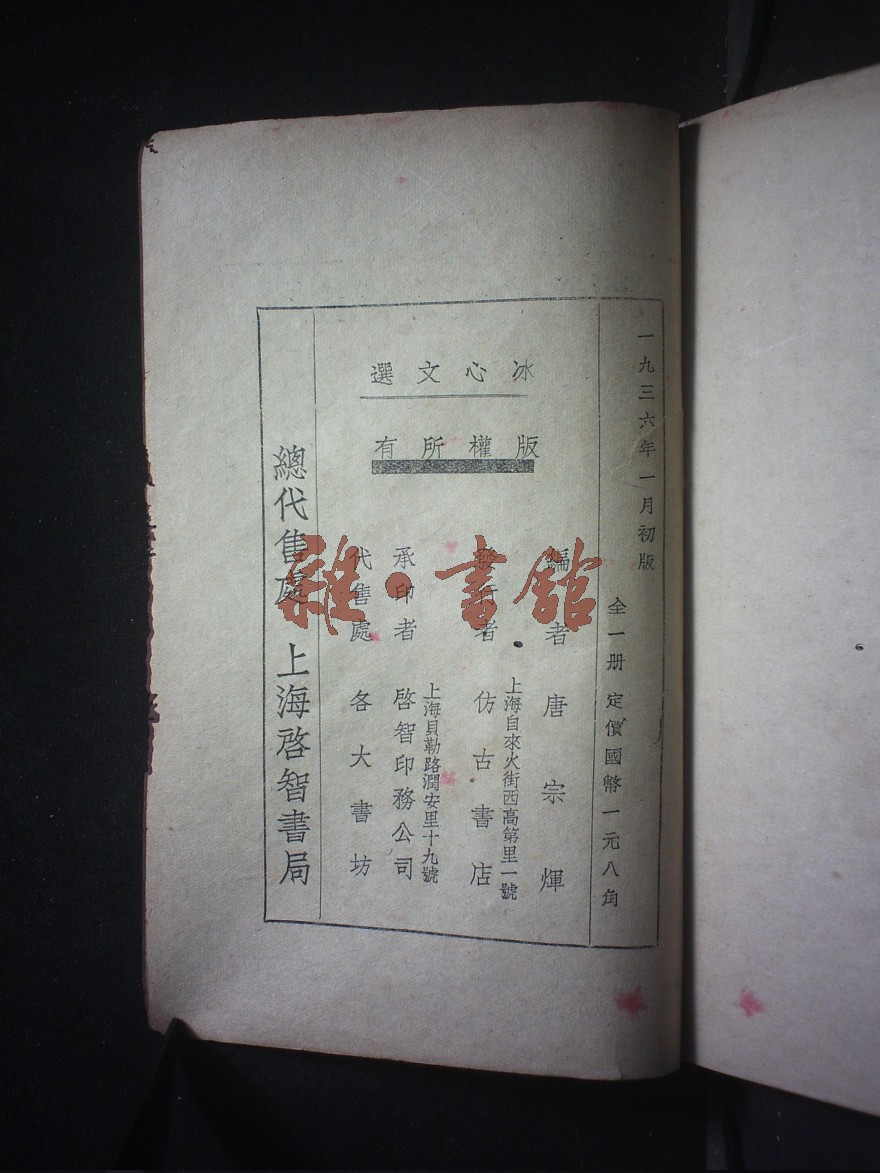 一九三六年一月初版
全一册 定價國幣一元八角
冰心文選
版權所有
編者 唐宗煇
上海自來火街西高第里一號
發行者 仿古書店
上海貝勒路潤安里十九號
承印者 啓智印務公司
代售處 各大書坊
總代售處 上海啓智書局
雜·書館